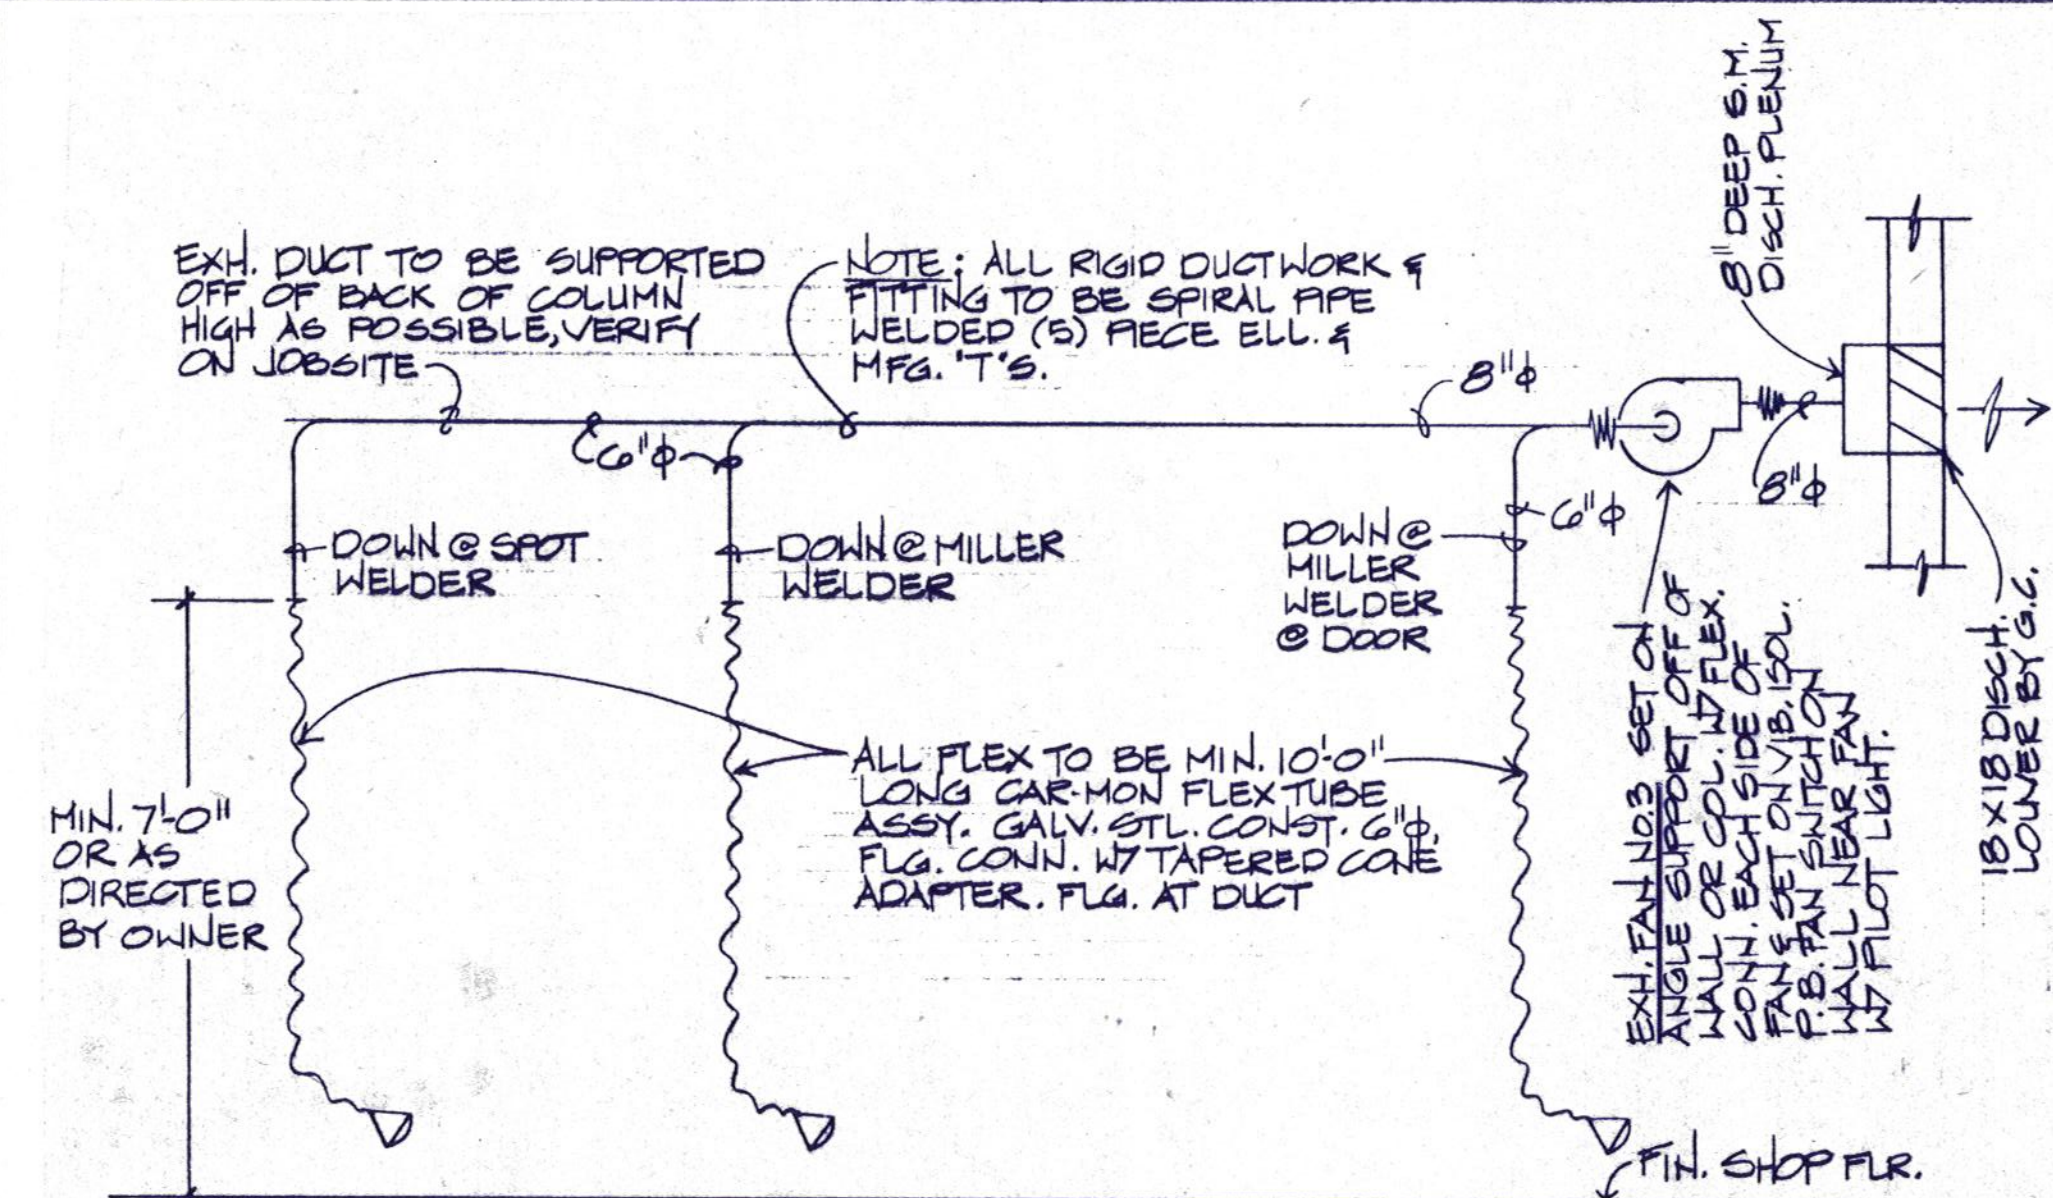 EXH. DUCT TO BE SUPPORTED
OFF OF BACK OF COLUMN
HIGH AS POSSIBLE, VERIFY
ON JOBSITE
NOTE: ALL RIGID DUCTWORK &
FITTING TO BE SPIRAL PIPE
WELDED (5) PIECE ELL. &
MFG. "T"S.
8" DEEP S.M.
DISCH. PLENUM
8"ϕ
6"ϕ
8"ϕ
6"ϕ
DOWN @ SPOT
WELDER
DOWN @ MILLER
WELDER
DOWN @
MILLER
WELDER
@ DOOR
MIN. 7'-0"
OR AS
DIRECTED
BY OWNER
ALL FLEX TO BE MIN. 10'-0"
LONG CAR-MON FLEX TUBE
ASSY. GALV. STL. CONST. 6"ϕ,
FLG. CONN. W/ TAPERED CONE
ADAPTER. FLG. AT DUCT
EXH. FAN NO.3 SET ON
ANGLE SUPPORT OFF OF
WALL OR COL. W/ FLEX.
CONN. EACH SIDE OF
FAN & SET ON VIB. ISOL.
P.B. FAN SWITCH ON
WALL NEAR FAN
W/ PILOT LIGHT.
18 X 18 DISCH.
LOUVER BY G.C.
FIN. SHOP FLR.